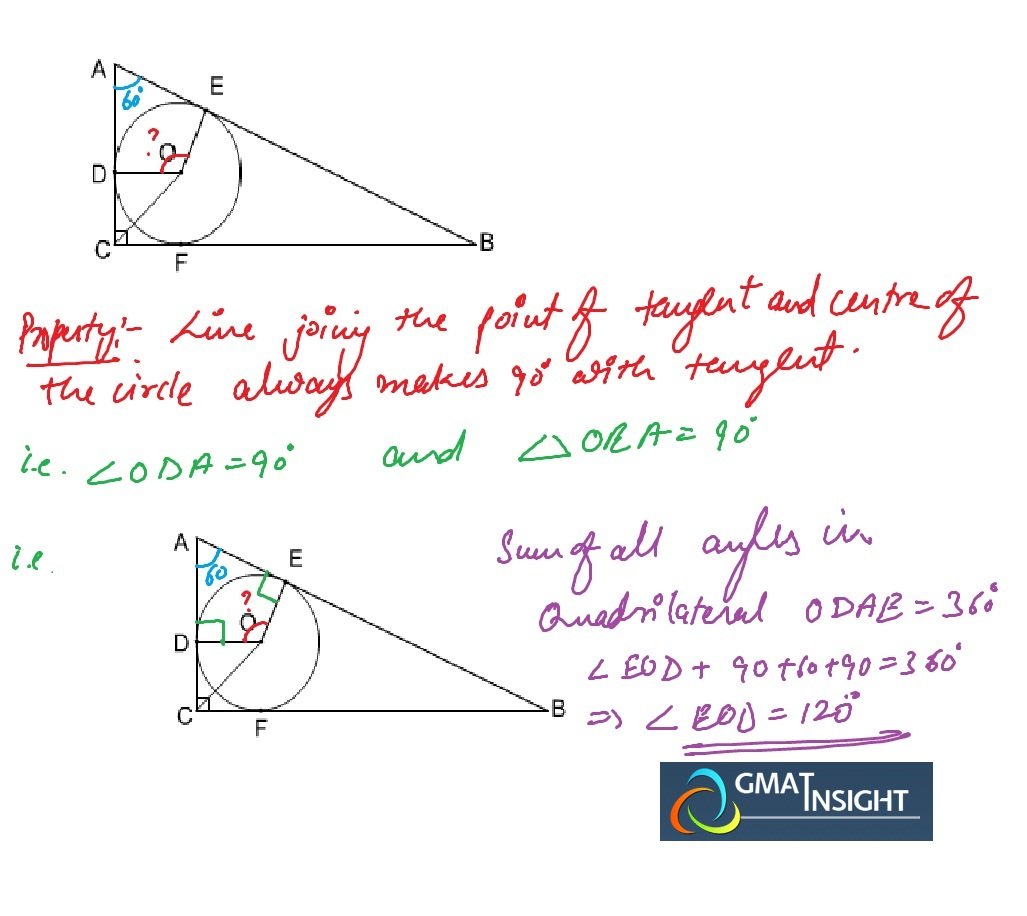 A
E
60°
?
O
D
C
F
B
Property:- Line joining the point of tangent and centre of
the circle always makes 90° with tangent.
i.e. ∠ODA = 90° and △OEA = 90°
i.e.
A
E
60
?
O
D
C
F
B
Sum of all angles in
Quadrilateral ODAE = 360°
∠EOD + 90+60+90 = 360°
=> ∠EOD = 120°
GMAT INSIGHT